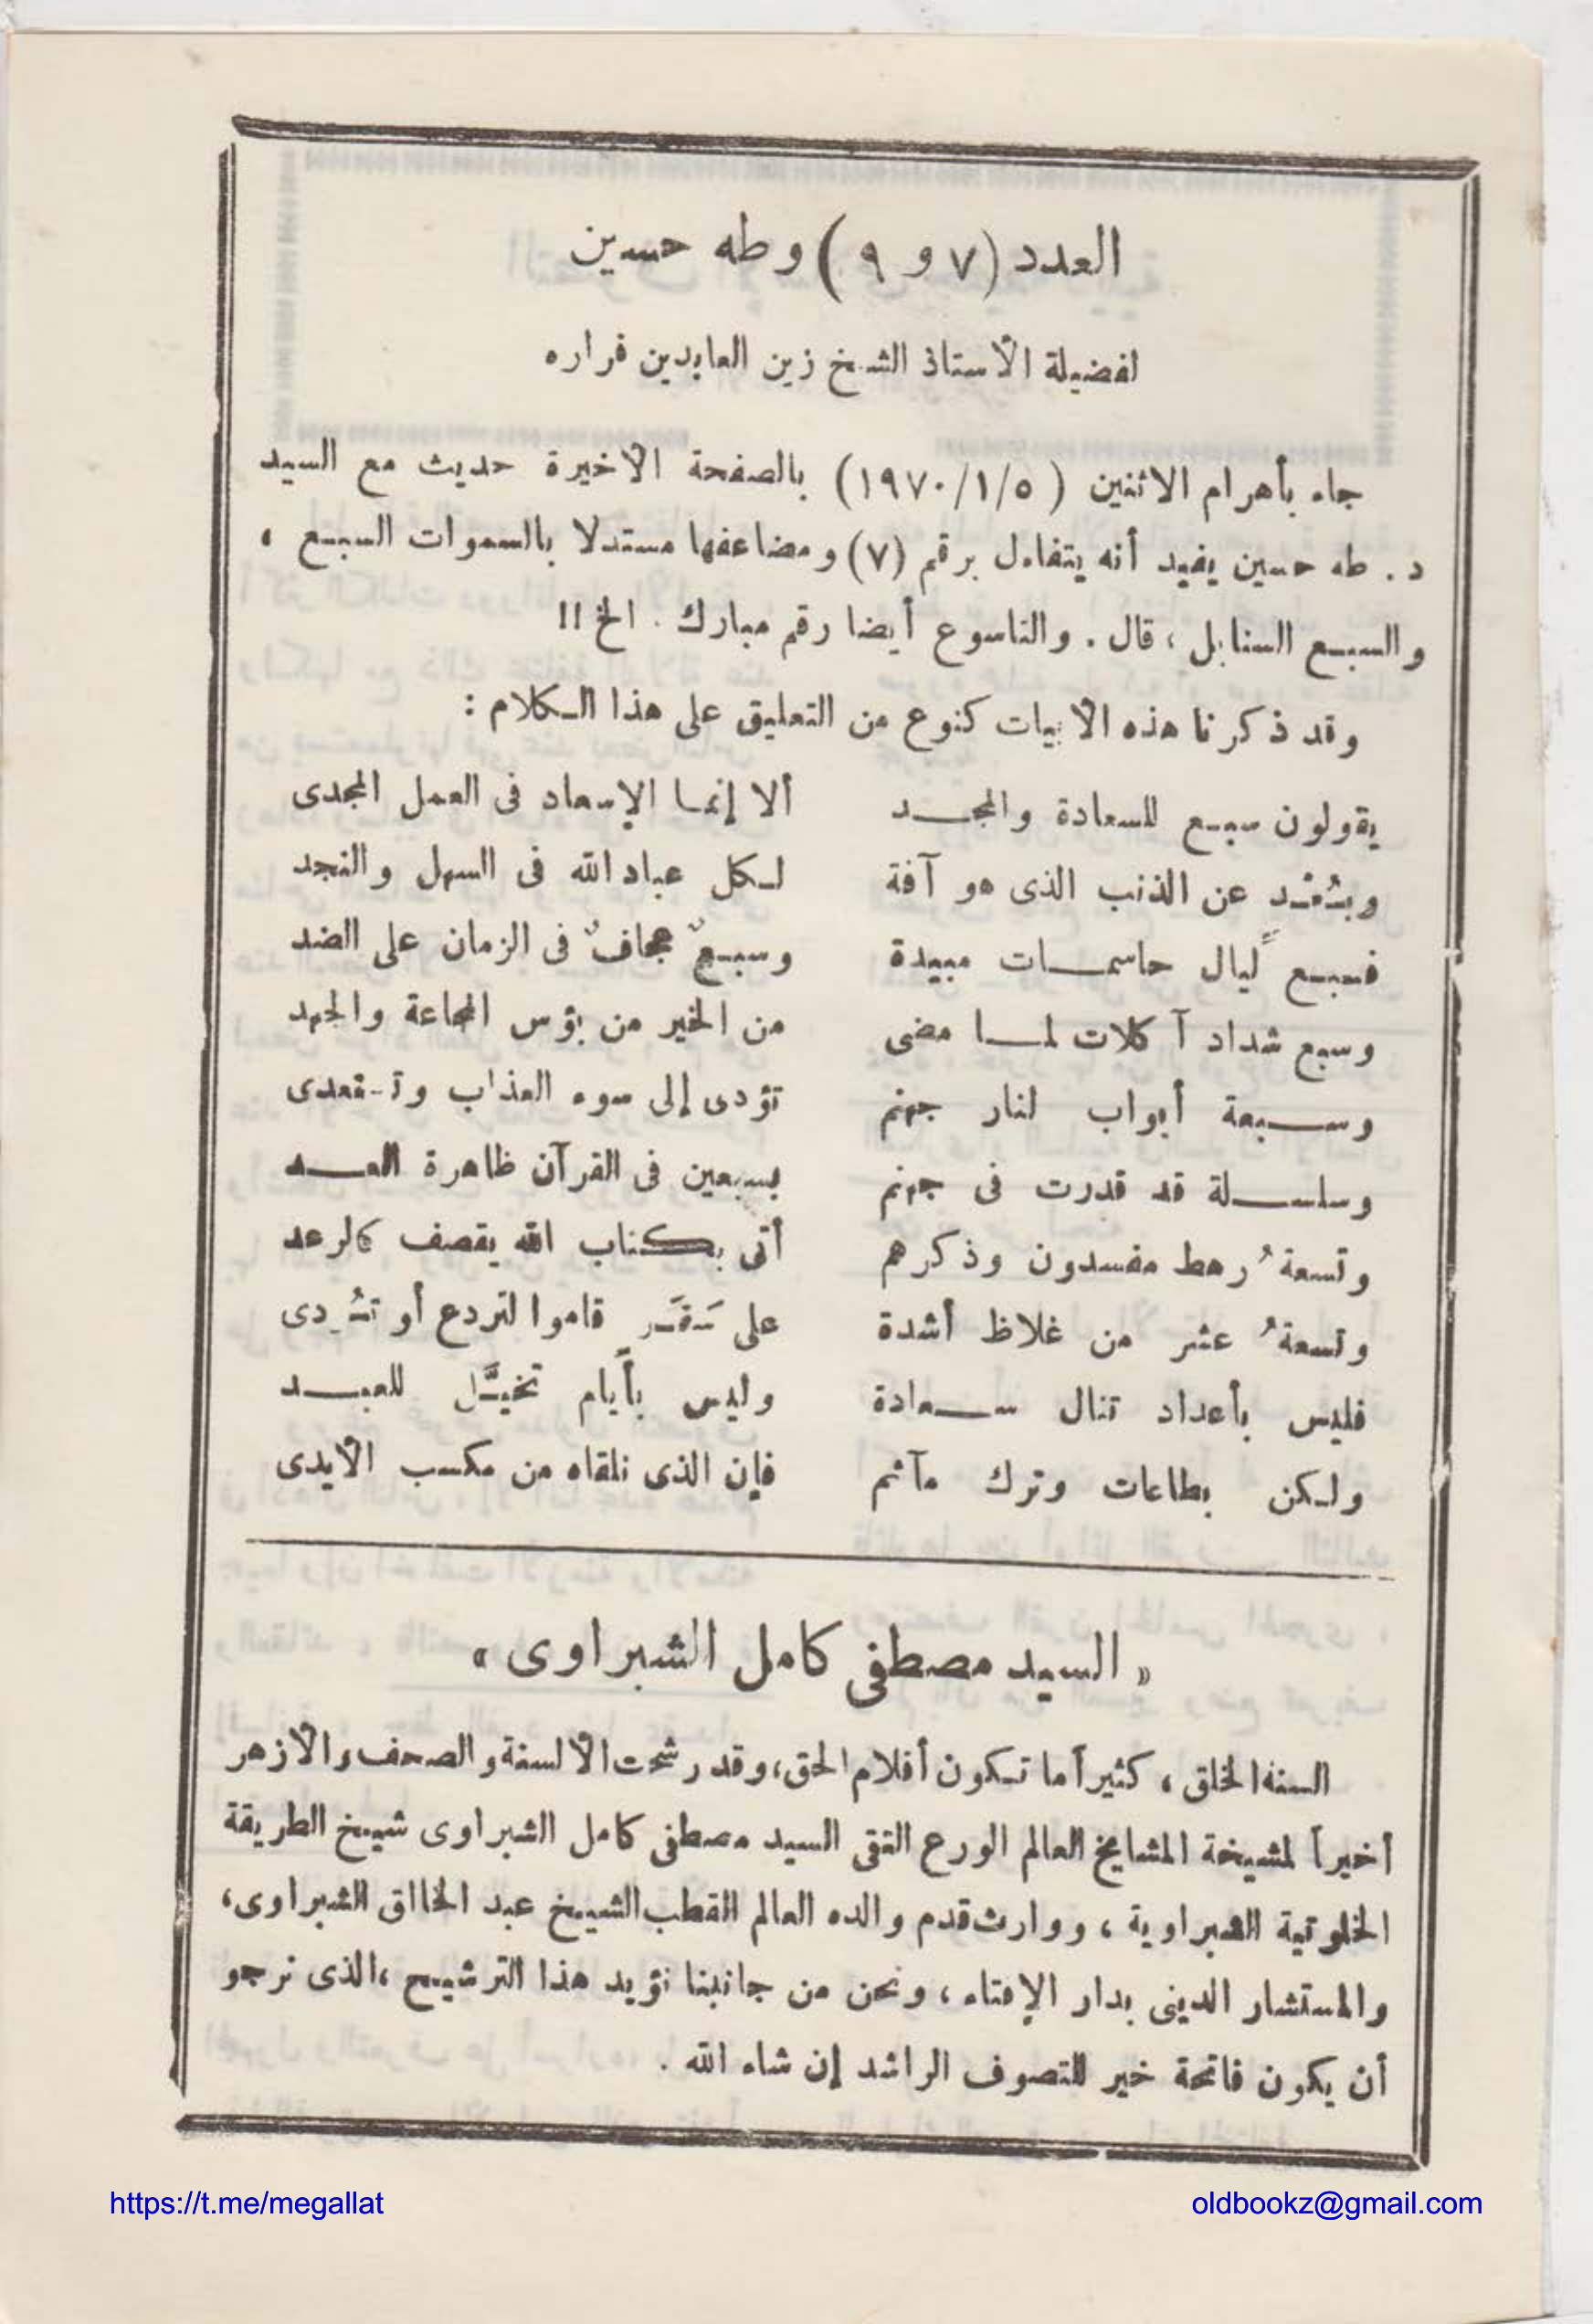 العدد (٧ و ٩) وطه حسين
لفضيلة الأستاذ الشيخ زين العابدين قراره
جاء بأهرام الاثنين (١٩٧٠/١/٥) بالصفحة الأخيرة حديث مع السيد
د. طه حسين يفيد أنه يتفاءل برقم (٧) ومضاعفها مستدلا بالسموات السبع ،
والسبع السنابل ، قال . والتاسوع أيضا رقم مبارك . الخ !!
وقد ذكرنا هذه الأبيات كنوع من التعليق على هذا الكلام :
يقولون سبع للسعادة والمجد ألا إنما الإسعاد فى العمل المجدى
وبُعْد عن الذنب الذى هو آفة لكل عباد الله فى السهل والنجد
فسبع ليال حاسمات مبيدة وسبعٌ عجافٌ فى الزمان على الضد
وسبع شداد آكلات لما مضى من الخير من بؤس المجاعة والجهد
وسبعة أبواب لنار جهنم تؤدى إلى سوء العذاب وتستعدى
وسلسلة قد قدرت فى جهنم بسبعين فى القرآن ظاهرة العد
وتسعةُ رهط مفسدون وذكرهم أتى بكتاب الله يقصف كالرعد
وتسعةُ عشر من غلاظ أشدة على سَقَر قاموا لتردع أو تُردى
فليس بأعداد تنال سعادة وليس بأيام تخيَّل للعبد
ولكن بطاعات وترك مآثم فإن الذى نلقاه من مكسب الأيدى
« السيد مصطفى كامل الشبراوى »
ألسنة الخلق ، كثيراً ما تكون أقلام الحق، وقد رشحت الألسنة والصحف والأزهر
أخيراً لمشيخة المشايخ العالم الورع التقى السيد مصطفى كامل الشبراوى شيخ الطريقة
الخلوتية الشبراوية ، ووارث قدم والده العالم القطب الشيخ عبد الخالق الشبراوى،
والمستشار الدينى بدار الإفتاء ، ونحن من جانبنا نؤيد هذا الترشيح ،الذى نرجو
أن يكون فاتحة خير للتصوف الراشد إن شاء الله .
https://t.me/megallat oldbookz@gmail.com